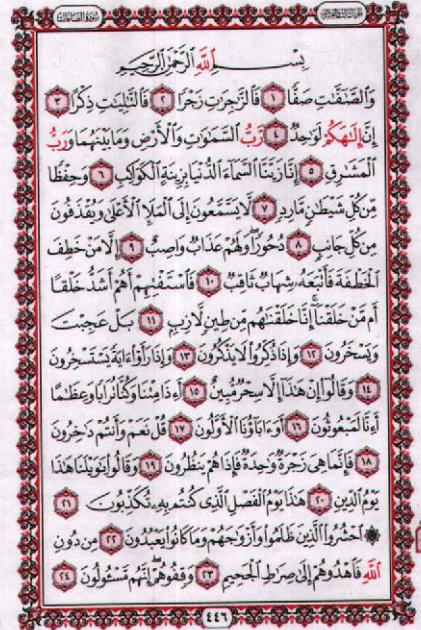 الجزء الثالث والعشرون
سورة الصافات
بِسْمِ اللَّهِ الرَّحْمَٰنِ الرَّحِيمِ
وَالصَّـٰٓفَّـٰتِ صَفًّا ١ فَالزَّٰجِرَٰتِ زَجْرًا ٢ فَالتَّـٰلِيَـٰتِ ذِكْرًا ٣
إِنَّ إِلَـٰهَكُمْ لَوَٰحِدٌ ٤ رَّبُّ السَّمَـٰوَٰتِ وَالْأَرْضِ وَمَا بَيْنَهُمَا وَرَبُّ
الْمَشَـٰرِقِ ٥ إِنَّا زَيَّنَّا السَّمَآءَ الدُّنْيَا بِزِينَةٍ الْكَوَاكِبِ ٦ وَحِفْظًا
مِّن كُلِّ شَيْطَـٰنٍ مَّارِدٍ ٧ لَّا يَسَّمَّعُونَ إِلَى الْمَلَإِ الْأَعْلَىٰ وَيُقْذَفُونَ
مِن كُلِّ جَانِبٍ ٨ دُحُورًا وَلَهُمْ عَذَابٌ وَاصِبٌ ٩ إِلَّا مَنْ خَطِفَ
الْخَطْفَةَ فَأَتْبَعَهُۥ شِهَابٌ ثَاقِبٌ ١٠ فَاسْتَفْتِهِمْ أَهُمْ أَشَدُّ خَلْقًا
أَم مَّنْ خَلَقْنَآ إِنَّا خَلَقْنَـٰهُم مِّن طِينٍ لَّازِبٍ ١١ بَلْ عَجِبْتَ
وَيَسْخَرُونَ ١٢ وَإِذَا ذُكِّرُوا لَا يَذْكُرُونَ ١٣ وَإِذَا رَأَوْا ءَايَةً يَسْتَسْخِرُونَ
١٤ وَقَالُوٓا إِنْ هَـٰذَآ إِلَّا سِحْرٌ مُّبِينٌ ١٥ أَءِذَا مِتْنَا وَكُنَّا تُرَابًا وَعِظَـٰمًا
أَءِنَّا لَمَبْعُوثُونَ ١٦ أَوَءَابَآؤُنَا الْأَوَّلُونَ ١٧ قُلْ نَعَمْ وَأَنتُمْ دَٰخِرُونَ
١٨ فَإِنَّمَا هِىَ زَجْرَةٌ وَٰحِدَةٌ فَإِذَا هُمْ يَنظُرُونَ ١٩ وَقَالُوا يَـٰوَيْلَنَا هَـٰذَا
يَوْمُ الدِّينِ ٢٠ هَـٰذَا يَوْمُ الْفَصْلِ الَّذِى كُنتُم بِهِۦ تُكَذِّبُونَ ٢١
۞ احْشُرُوا الَّذِينَ ظَلَمُوا وَأَزْوَٰجَهُمْ وَمَا كَانُوا يَعْبُدُونَ ٢٢ مِن دُونِ
اللَّهِ فَاهْدُوهُمْ إِلَىٰ صِرَٰطِ الْجَحِيمِ ٢٣ وَقِفُوهُمْ إِنَّهُم مَّسْـُٔولُونَ ٢٤
٤٤٦